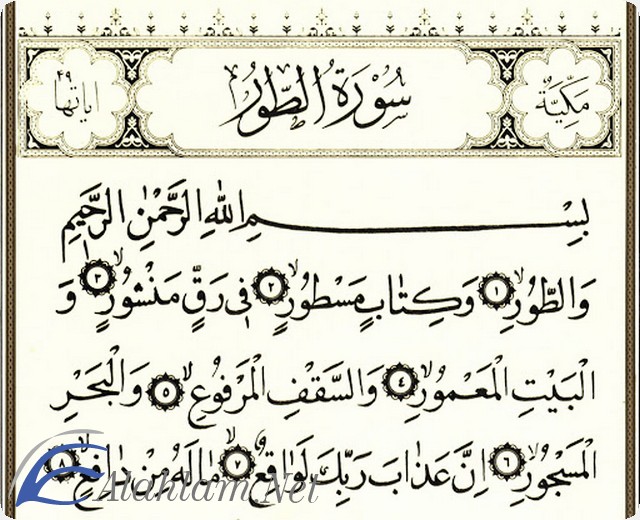 مَكِّيَّةٌ سُورَةُ الطُّورِ اياتها ٤٩
بِسْمِ اللهِ الرَّحْمٰنِ الرَّحِيمِ
وَالطُّورِ ١ وَكِتَابٍ مَسْطُورٍ ٢ فِي رَقٍّ مَنْشُورٍ ٣ وَ
الْبَيْتِ الْمَعْمُورِ ٤ وَالسَّقْفِ الْمَرْفُوعِ ٥ وَالْبَحْرِ
الْمَسْجُورِ ٦ اِنَّ عَذَابَ رَبِّكَ لَوَاقِعٌ ٧ مَالَهُ مِنْ دَافِعٍ ٨
Alahlam.Net